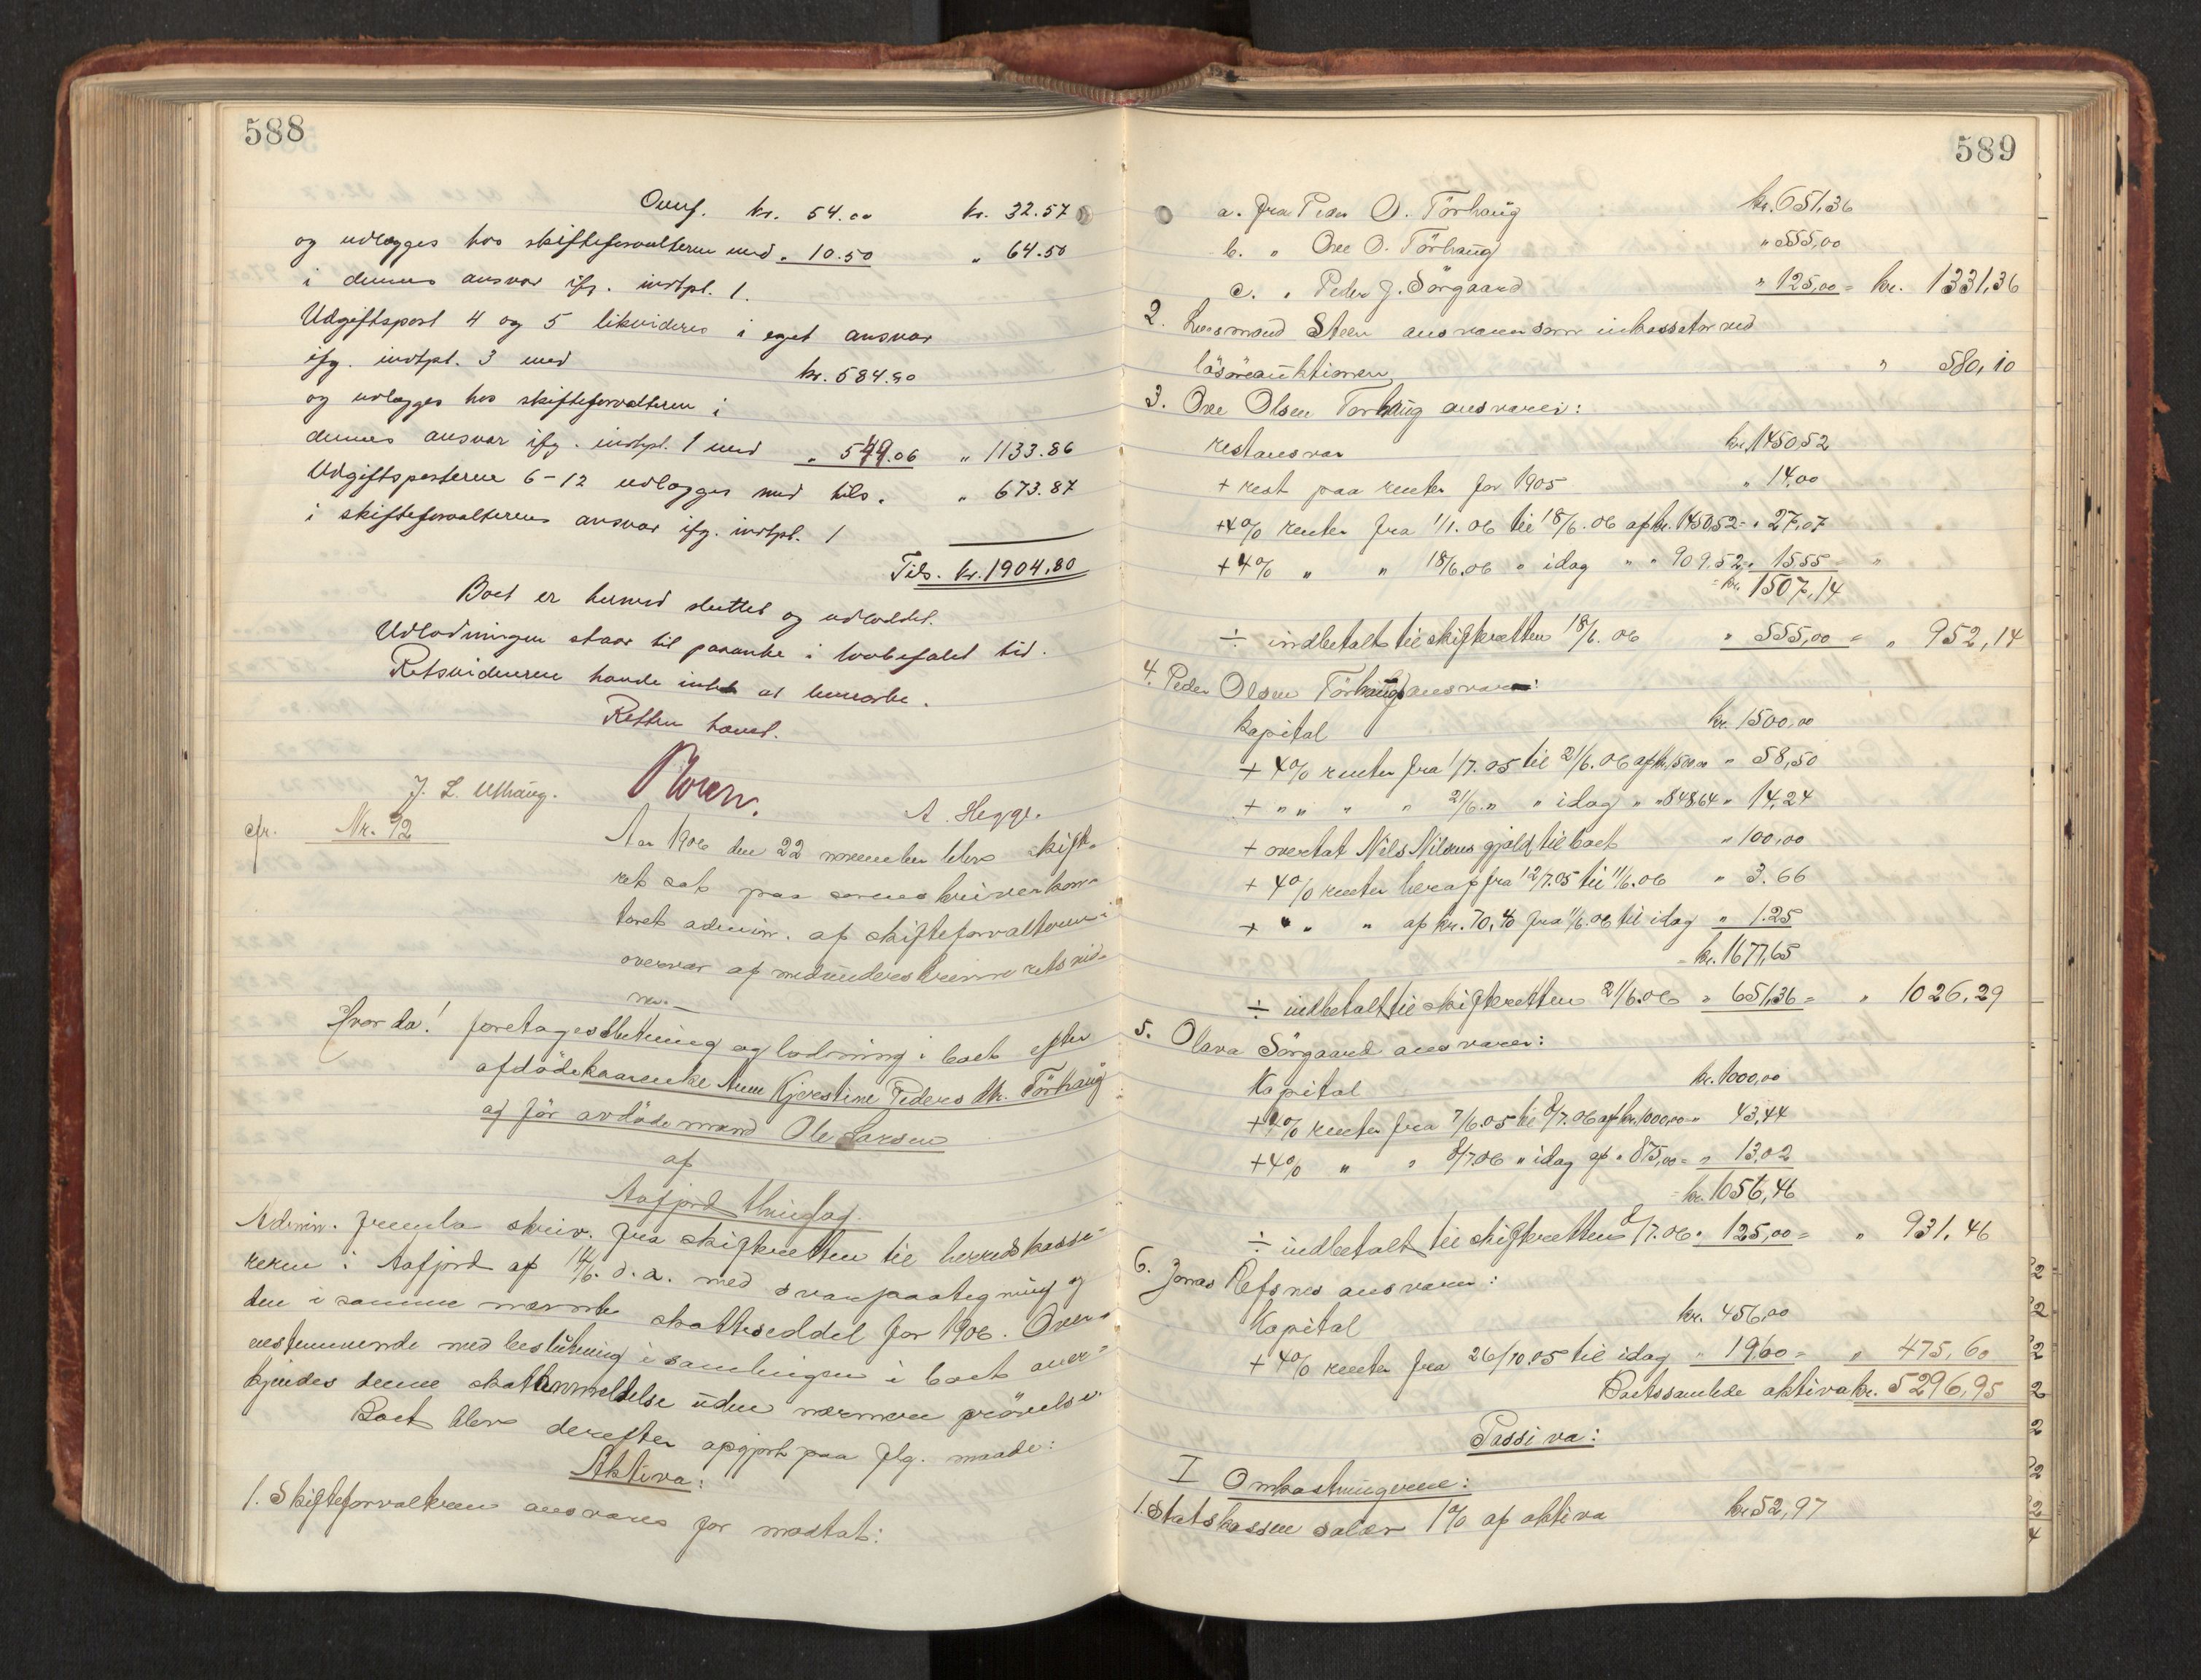 588
Overf. kr. 54.00 kr. 32.57
og udlægges hos skifteforvalteren med „ 10.50 „ 64.50
i dennes ansvar ifg. indtpl. 1.
Udgiftspost 4 og 5 likvideres i eget ansvar
ifg. indtpl. 3 med kr. 584.80
og udlægges hos skifteforvalteren i
dennes ansvar ifg. indtpl. 1 med „ 549.06 „ 1133.86
Udgiftsposterne 6-12 udlægges med tils. „ 673.87
i skifteforvalterens ansvar ifg. indtpl. 1
Tils. kr. 1904.80
Boet er hermed sluttet og udloddet.
Udlodningen staar til paaanke i lovbefalet tid.
Retsvidnerne havde intet at bemærke.
Retten hævet.
J. L. Uthaug. A. Hegge.
cfr. Nr. 92
Aar 1906 den 22 november blev skifte-
ret sat paa sorenskriverkon-
toret admin. af skifteforvalteren i
overvær af medunderskrevne retsvid-
ner. –
Hvor da! foretoges slutning og lodning i boet efter
afdøde kaarenke Anne Kjerstine Pedersdtr. Törhaug
og før avdøde mand Ole Larsen
af
Aafjord thinglag.
Admin. fremla skriv. fra skifteretten til herredskasse-
reren i Aafjord af 14/6. d. a. med svarpaategning og
den i samme nævnte skatteseddel for 1906. Over-
ensstemmende med beslutning i samlingen i boet aner-
kjendes denne skatanmeldelse uden nærmere prövelse.
Boet blev derefter opgjort paa flg. maade:
Aktiva:
1. Skifteforvalteren ansvarer for modtat:
589
a. fra Peder O. Törhaug kr. 651,36
b. „ Ove O. Törhaug „ 555,00
c. „ Peder J. Sörgaard „ 125,00 = kr. 1331,36
2. Lensmand Steen ansvarer som inkassator ved
lösöreauktionen „ 580,10
3. Ove Olsen Törhaug ansvarer:
restansvar kr. 1450,52
+ rest paa renter for 1905 „ 14,00
+ 4% renter fra 1/1. 06 til 18/6. 06 af kr. 1450,52 = „ 27,07
+ 4% „ „ 18/6. 06 „ idag „ „ 909.52 = „ 15.55
= kr. 1507,14
÷ indbetalt til skifteretten 18/6. 06 „ 555,00 = „ 952,14
4. Peder Olsen Törhaug ansvarer:
Kapital kr. 1500,00
+ 4% renter fra 1/7. 05 til 21/6. 06 af kr. 1500.00 „ 58,50
+ „ „ „ „ 21/6. „ „ idag „ „ 848,64 „ 14,24
+ overtat Nils Nilsens gjæld til boet „ 100,00
+ 4% renter herap fra 12/7. 05 til 11/6. 06 „ 3.66
+ „ „ „ af kr. 70,40 fra 11/6. 06 til idag „ 1.25
= kr. 1677,65
÷ indbetalt til skifteretten 21/6. 06 „ 651,36 = „ 1026,29
5. Olava Sörgaard ansvarer:
Kapital kr. 1000,00
+ 4% renter fra 7/6. 05 til 8/7. 06 af kr. 1000,00 = „ 43,44
+ 4% „ „ 8/7 06 „ idag af „ 875,00 = „ 13,02
= kr. 1056,46
÷ indbetalt til skifteretten 8/7. 06 „ 125,00 = „ 931,46
6. Jonas Refsnes ansvarer:
Kapital kr. 456,00
+ 4% renter fra 26/10. 05 til idag „ 19,60 = „ 475,60
Boets samlede aktiva kr. 5296,95
Passiva:
I Omkostningerne:
1. Statskassen salær 1% af aktiva kr. 52,97